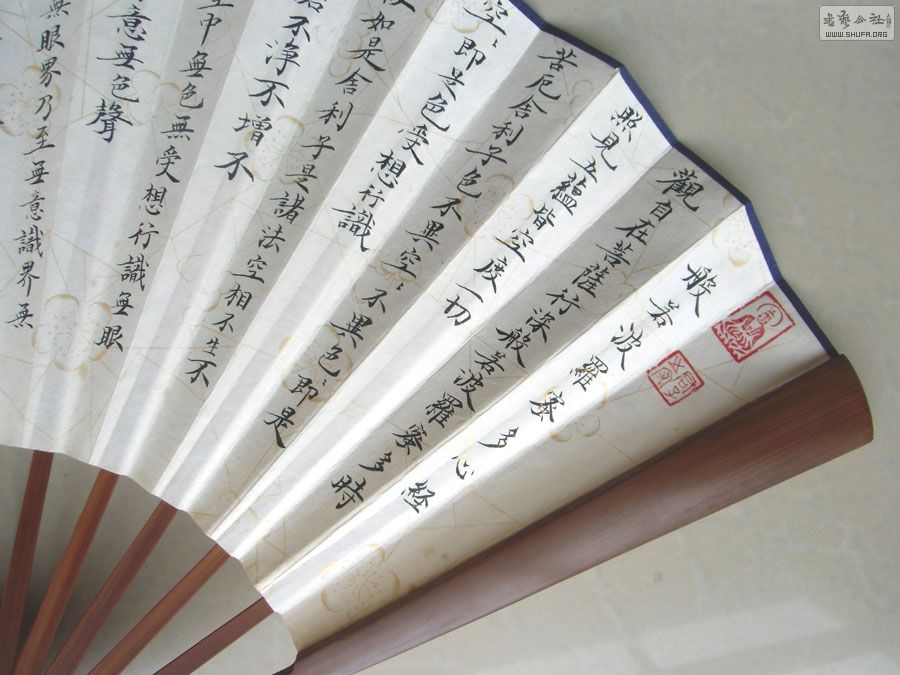 般若波羅蜜多心経
觀自在菩薩行深般若波羅蜜多時
照見五蘊皆空度一切
苦厄舍利子色不異空〻不異色〻即是
空〻即是色受想行識
如是舍利子是諸法空相不生不
不淨不增不
中無色無受想行識無眼
意無色聲
無眼界乃至無意識界無
WWW.SHUFA.ORG